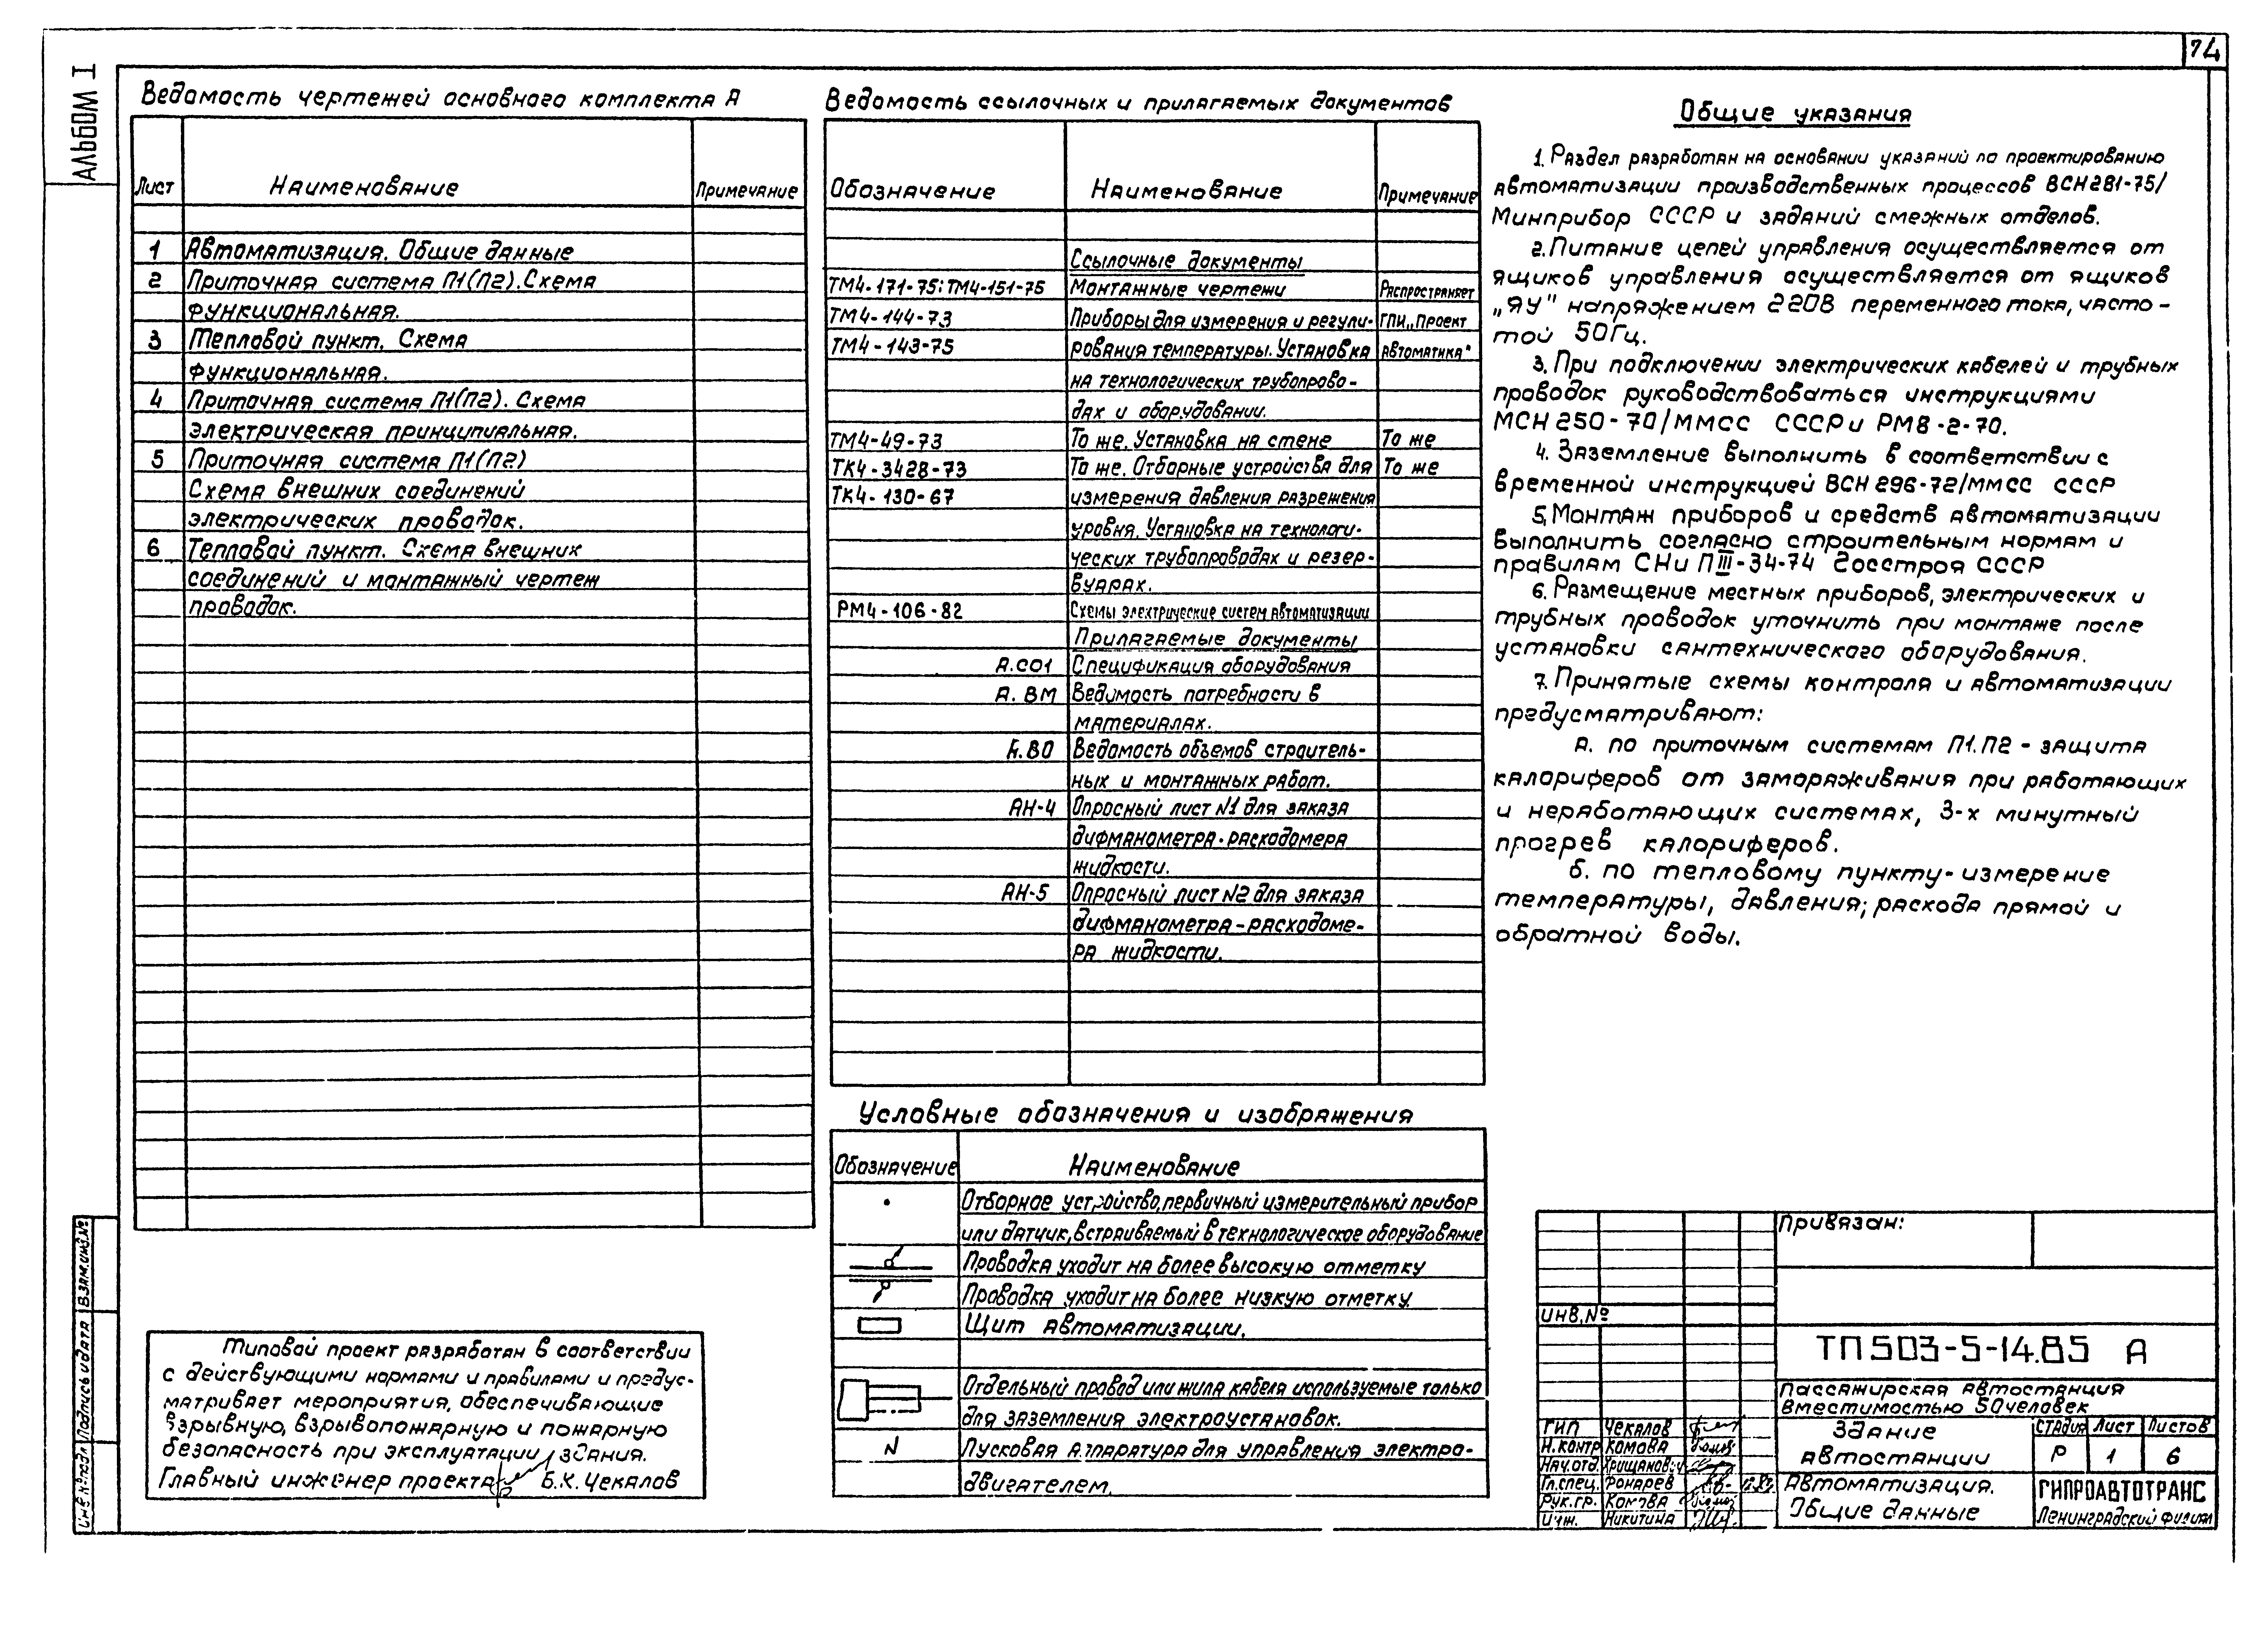 74
Альбом I
Ведомость чертежей основного комплекта А
Лист Наименование Примечание
1 Автоматизация. Общие данные
2 Приточная система П1(П2). Схема
функциональная.
3 Тепловой пункт. Схема
функциональная.
4 Приточная система П1(П2). Схема
электрическая принципиальная.
5 Приточная система П1(П2)
Схема внешних соединений
электрических проводок.
6 Тепловой пункт. Схема внешних
соединений и монтажный чертеж
проводок.
Типовой проект разработан в соответствии
с действующими нормами и правилами и предус-
матривает мероприятия, обеспечивающие
взрывную, взрывопожарную и пожарную
безопасность при эксплуатации здания.
Главный инженер проекта Б.К. Чекалов
Ведомость ссылочных и прилагаемых документов
Обозначение Наименование Примечание
Ссылочные документы
ТМ4-171-75÷ТМ4-151-75 Монтажные чертежи Распространяет
ТМ4-144-73 Приборы для измерения и регули- ГПИ „Проект
ТМ4-143-75 рования температуры. Установка автоматика"
на технологических трубопрово-
дах и оборудовании.
ТМ4-49-73 То же. Установка на стене То же
ТК4-3428-73 То же. Отборные устройства для То же
ТК4-130-67 измерения давления разрежения
уровня. Установка на технологи-
ческих трубопроводах и резер-
вуарах.
РМ4-106-82 Схемы электрические систем автоматизации
Прилагаемые документы
А.СО1 Спецификация оборудования
А.ВМ Ведомость потребности в
материалах.
А.ВО Ведомость объемов строитель-
ных и монтажных работ.
АН-4 Опросный лист N1 для заказа
дифманометра-расходомера
жидкости.
АН-5 Опросный лист N2 для заказа
дифманометра-расходоме-
ра жидкости.
Условные обозначения и изображения
Обозначение Наименование
Отборное устройство, первичный измерительный прибор
или датчик, встраиваемый в технологическое оборудование
Проводка уходит на более высокую отметку
Проводка уходит на более низкую отметку.
Щит автоматизации.
Отдельный провод или жила кабеля используемые только
для заземления электроустановок.
N Пусковая аппаратура для управления электро-
двигателем.
Общие указания
1. Раздел разработан на основании указаний по проектированию
автоматизации производственных процессов ВСН281-75/
Минприбор СССР и заданий смежных отделов.
2. Питание цепей управления осуществляется от
ящиков управления осуществляется от ящиков
„ЯУ" напряжением 220В переменного тока, часто-
той 50Гц.
3. При подключении электрических кабелей и трубных
проводок руководствоваться инструкциями
МСН250-70/ММСС СССР и РМ8-2-70.
4. Заземление выполнить в соответствии с
временной инструкцией ВСН296-72/ММСС СССР
5. Монтаж приборов и средств автоматизации
выполнить согласно строительным нормам и
правилам СНиП III-34-74 Госстроя СССР
6. Размещение местных приборов, электрических и
трубных проводок уточнить при монтаже после
установки сантехнического оборудования.
7. Принятые схемы контроля и автоматизации
предусматривают:
а. по приточным системам П1.П2 - защита
калориферов от замораживания при работающих
и неработающих системах, 3-х минутный
прогрев калориферов.
б. по тепловому пункту- измерение
температуры, давления; расхода прямой и
обратной воды.
Привязан:
Инв.№
ТП503-5-14.85 А
Пассажирская автостанция
вместимостью 50человек
ГИП Чекалов
Н.контр Комова
Нач.отд.
Гл.спец. Фонарев
Рук.гр. Комова
Инж. Никитина
Здание
автостанции
Стадия Лист Листов
Р 1 6
Автоматизация.
Общие данные
ГИПРОАВТОТРАНС
Ленинградский филиал
Инв.№ подл Подпись и дата Взам.инв.№